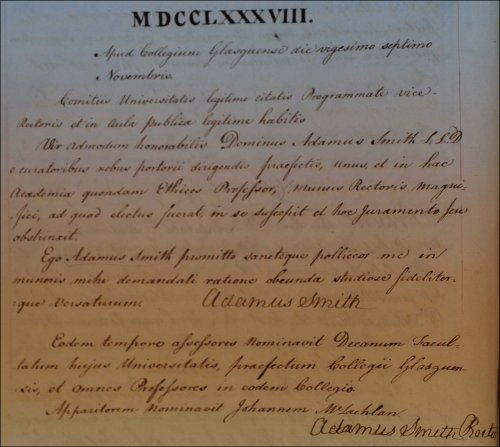 MDCCLXXXVIII.
Apud Collegium Glasguense die vigesimo septimo
Novembris.
Comitiis Universitatis legitime citatis Programmate vice-
Rectoris et in Aula publica legitime habitis
Vir admodum honorabilis Dominus Adamus Smith L.L.D.
e curatoribus rebus portorii dirigendis praefectis, unus, et in hac
Academia quondam Ethices Professor, munus Rectoris magni-
fici, ad quod electus fuerat, in se suscepit et hoc Juramento seu
obstrinxit.
Ego Adamus Smith promitto sancteque polliceor me in
muneris mihi demandati ratione obeunda studiose fideliter-
que versaturum. Adamus Smith
Eodem tempore assessores nominavit Decanum Facul-
tatum hujus Universitatis, praefectum Collegii Glasguen-
sis, et omnes Professores in eodem Collegio.
Apparitorem nominavit Johannem McLachlan
Adamus Smith Rector